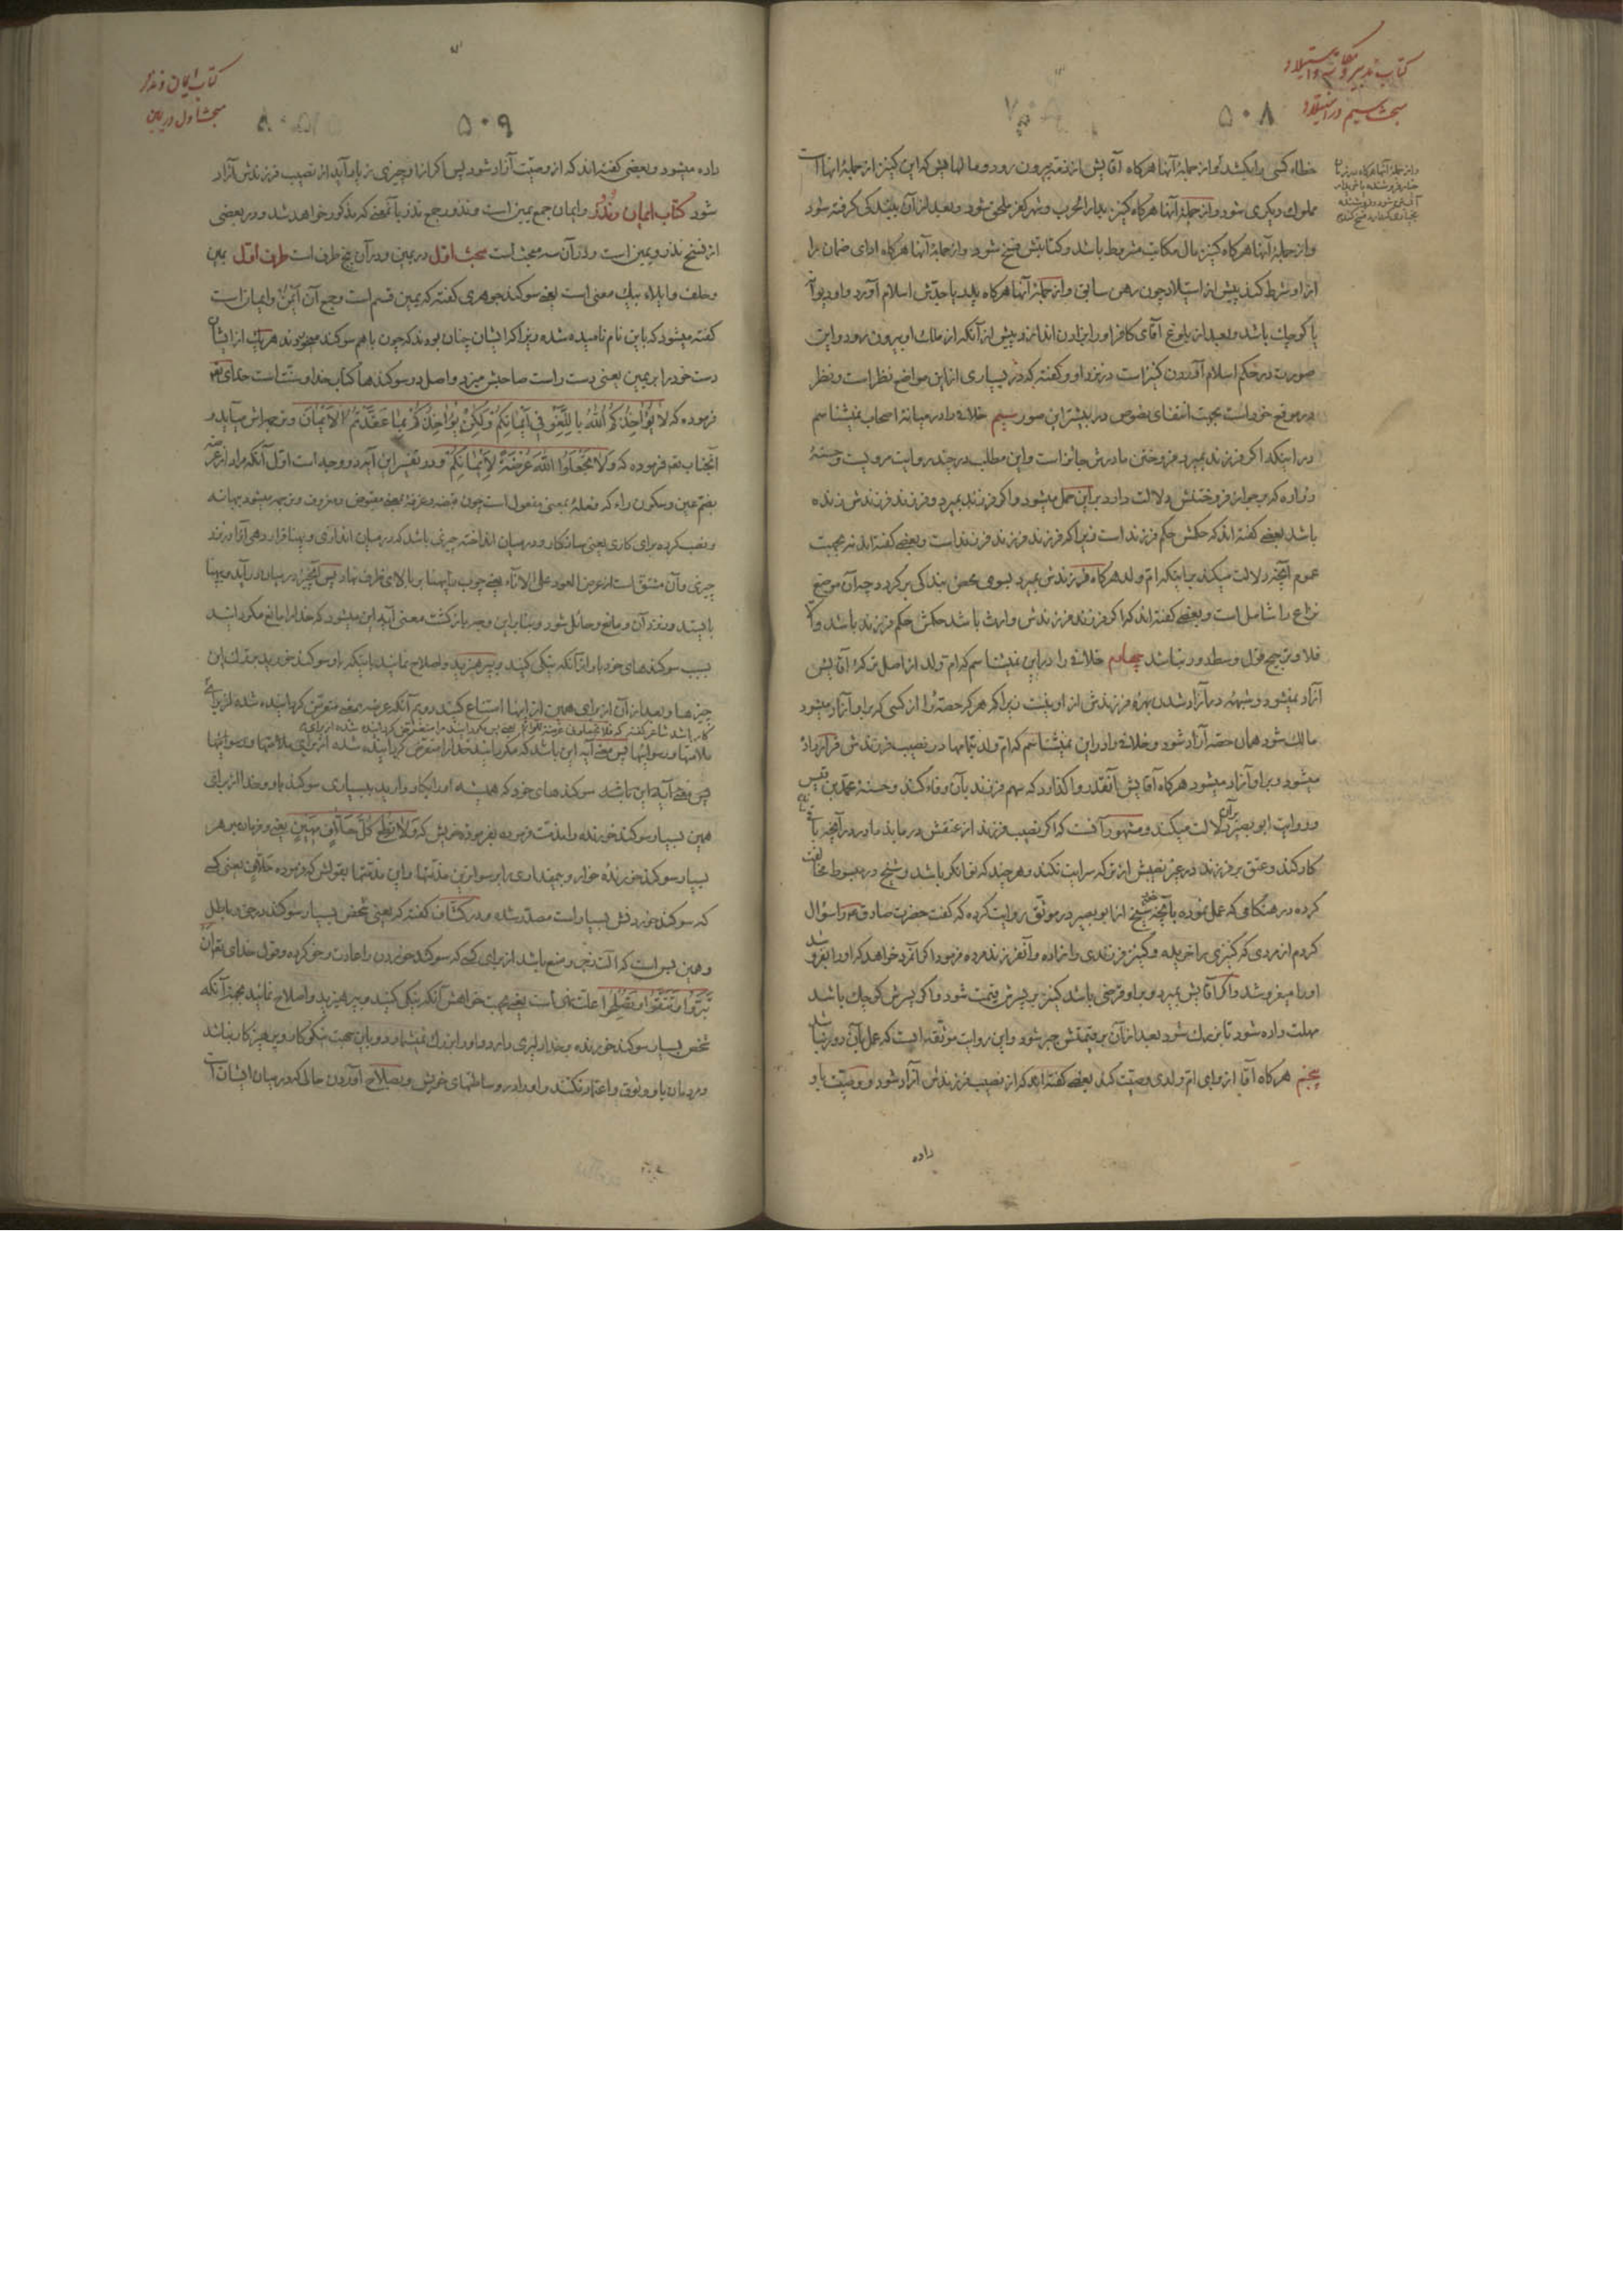 کتاب تدبیر و مکاتبه و استیلاد
مبحث سیم در استیلاد
۵۰۸
خطاء کسی را بکشد و از جملهٔ آنها هرکاه آقایش از ذمه بیرون رود و مالها پس که این کنیز از جملهٔ آنها است
مملوك دیکری شود و از جملهٔ آنها هرکاه کنیز بدار الحرب و شهر کفر ملحق شود و بعد از آن ببندکی کرفته شود
و از جملهٔ آنها هرکاه کنیز مال مکاتب مشروط باشد و کتابتش فسخ شود و از جملهٔ آنها هرکاه ادای ضمان را
از او شرط کند پیش از استیلاد چون رهن سابق و از جملهٔ آنها هرکاه پدر یا جدش اسلام آورد و او دیوانه
یا کوچك باشد و بعد از بلوغ آقای کافر او را بزادن اندازد پیش از آنکه از ملك او بیرون رود و این
صورت در حکم اسلام آوردن کنیز است در نزد او و کفته که در بسیاری از این مواضع نظر است و نظر
در موقع خود است بجهت انتفای نصوص در بیشتر این صور سیم خلافی را در میانهٔ اصحاب نمیشناسم
در اینکه اکر فرزند بمیرد فروختن مادرش جائز است و این مطلب در چند روایت مرویست و حسنهٔ
زراره که بجواز فروختنش دلالت دارد بر این حمل میشود و اکر فرزند بمیرد و فرزند فرزندش زنده
باشد بعضی کفته‌اند که حکمش حکم فرزند است زیرا که فرزند فرزند فرزند است و بعضی کفته‌اند نه بجهت
عموم آنچه دلالت میکند بر اینکه ام ولد هرکاه فرزندش بمیرد بسوی محض بندکی برکردد چه آن موضع
نزاع را شامل است و بعضی کفته‌اند که اکر فرزند فرزندش وارث باشد حکمش حکم فرزند باشد والا
فلا و ترجیح قول وسط دور نباشد چهارم خلافی را در این نمیشناسم که ام ولد از اصل ترکهٔ آقایش
آزاد نمیشود و شبهه در آزاد شدن بهرهٔ فرزندش از او نیست زیرا که هر که حصهٔ را از کسی که بر او آزاد میشود
مالك شود همان حصه آزاد شود و خلافی را در این نمیشناسم که ام ولد بتمامها در نصیب فرزندش قرار داده
میشود و بر او آزاد میشود هرکاه آقایش آنقدر واکذارد که سهم فرزند بآن وفاء کند و حسنهٔ محمد بن قیس
و روایت ابو بصیر بر آن دلالت میکند و مشهور آنست که اکر نصیب فرزند از عتقش درماند مادر در آنچه باقی
کار کند و عتق بر فرزند در غیر نصیبش از ترکه سرایت نکند و هر چند که توانکر باشد و شیخ در مبسوط مخالفت
کرده در هنکامی که عمل نموده بآنچه شیخ از ابو بصیر در موثق روایت کرده که کفت حضرت صادق را سؤال
کردم از مردی که کنیزی را خریده و کنیز فرزندی را زاده و آنفرزند مرده فرمود اکر آنمرد خواهد که او را بفروشد
او را میفروشد و اکر آقایش بمیرد و بر او قرضی باشد کنیز بر پسرش قیمت شود و اکر پسرش کوچك باشد
مهلت داده شود تا بزرك شود بعد از آن بر قیمتش جبر شود و این روایت موثقه‌ایست که عمل بآن دور نباشد
پنجم هرکاه آقا از برای ام ولدی وصیت کند بعضی کفته‌اند که از نصیب فرزندش آزاد شود و وصیت باو
داده
کتاب ایمان و نذر
مبحث اول در یمین
۵۰۹
داده میشود و بعضی کفته‌اند که از وصیت آزاد شود پس اکر از او چیزی زیاد آید از نصیب فرزندش آزاد
شود کتاب ایمان و نذر و ایمان جمع یمین است و نذور جمع نذر بآنمعنی که مذکور خواهد شد و در بعضی
از نسخ نذر و یمین است و در آن سه مبحث است مبحث اول در یمین و در آن پنج طرف است طرف اول یمین
و حلف و ایلاء بیك معنی است یعنی سوکند جوهری کفته که یمین قسم است و جمع آن ایمن و ایمان است
کفته میشود که باین نام نامیده شده زیرا که ایشان چنان بودند که چون با هم سوکند میخوردند هر یك از ایشان
دست خود را بر یمین یعنی دست راست صاحبش میزد و اصل در سوکندها کتاب خدا و سنت است خدای تعالی
فرموده که لا یؤاخذکم الله باللغو فی ایمانکم ولکن یؤاخذکم بما عقدتم الایمان و ترجمه‌اش میآید و
آنجناب نیز فرموده که ولا تجعلوا الله عرضة لایمانکم و در تفسیر این آیه دو وجه است اول آنکه مراد از عرضه
بضم عین و سکون راء که فعلهٔ بمعنی مفعول است چون قبضه و غرفه بمعنی مقبوض و مغروف و ترجمه میشود بهانه
و نصب کرده برای کاری یعنی ساز کار و در میان انداخته چیزی باشد که در میان اندازی و پهنا قرار دهی آنرا در نزد
چیزی و آن مشتق است از عرض العود علی الاناء یعنی چوب را پهنا بر بالای ظرف نهاد پس آنچیز در میان درآید و پهنا
بایستد و نزد آن و مانع و حائل شود و بنابراین وجه بازکشت معنی آیه این میشود که خدا را مانع مکردانید
بسبب سوکندهای خود باو از آنکه نیکی کنید و بپرهیزید و اصلاح نمائید باینکه باو سوکند خورید بر ترك این
چیزها و بعد از آن از برای همین از اینها امتناع کنید دویم آنکه عرضه بمعنی متعرض کردانیده شده از برای
ملامتها و رسوائیها پس معنی آیه این باشد که مکردانید خدا را متعرض کردانیده شده از برای ملامتها و رسوائیها
پس معنی آیه این باشد سوکندهای خود که همیشه او را بکار دارید به بسیاری سوکند باو و خدا از برای
همین بسیار سوکند خورنده را مذمت فرموده بفرمودهٔ خویش که ولا تطع کل حلاف مهین یعنی و فرمان مبر هر
بسیار سوکند خورندهٔ خوار و بیمقدار را بر سواترین مذمتها و این مذمتها بقولش که فرموده حلاف یعنی کسی
که سوکند خوردنش بسیار است مصدر شده و در کشاف کفته که یعنی شخص بسیار سوکند در حق و باطل
و همین بس است که آلت زجر و منع باشد از برای کسی که سوکند خوردن را عادت و خو کرده و قول خدای تعالی ان
تبروا و تتقوا و تصلحوا علت نهی است یعنی بجهت خواهش آنکه نیکی کنید و بپرهیزید و اصلاح نمائید بجهة آنکه
شخص بسیار سوکند خورنده بخدا دلیری دارد و او را بزرك نمیشمارد و باین جهت نیکوکار و پرهیزکار نباشد
و مردمان باو وثوق و اعتماد نکنند و او را در وساطتهای خویش و بصلاح آوردن حالی که در میان ایشان است